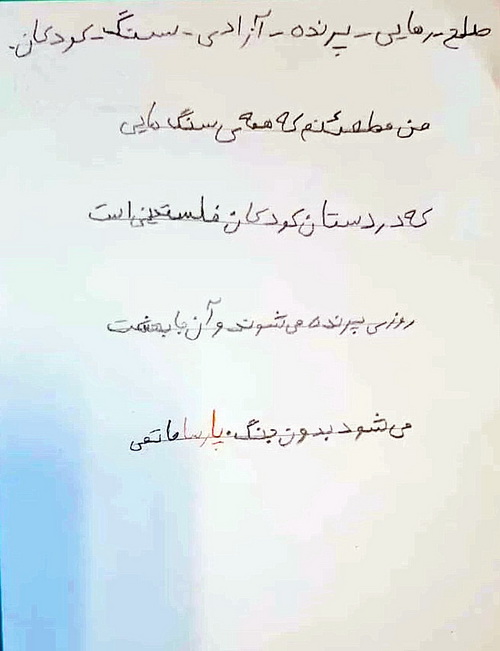 صلح - رهایی - پرنده - آزادی - سنگ - کودکان.
من مطمئنم که همه‌ی سنگ هایی
که در دستان کودکان فلسطینی است
روزی پرنده می‌شوند و آن جا بهشت
می‌شود بدون جنگ. پارسا ماتمی